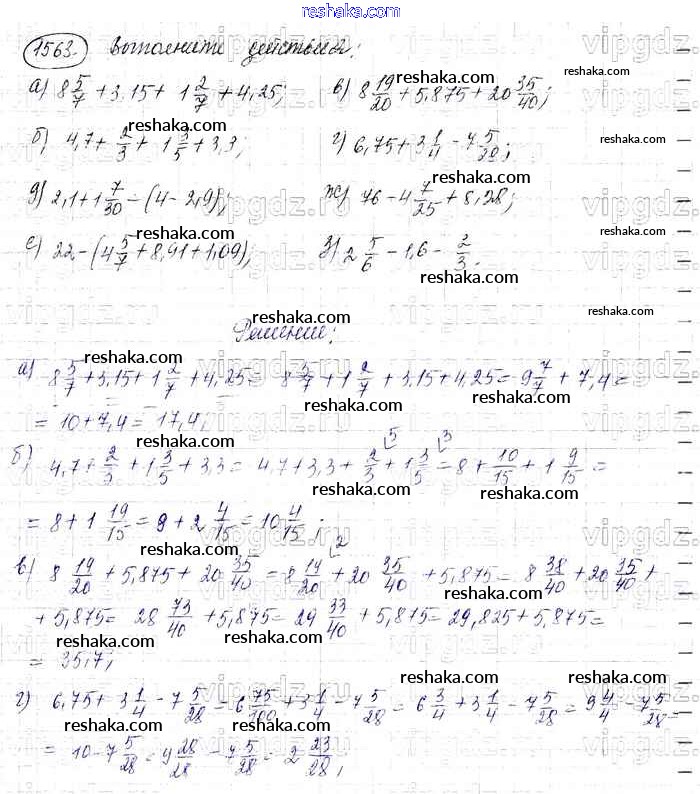 reshaka.com
1563. Выполните действия:
а) 8 5/7 + 3,15 + 1 2/7 + 4,25; в) 8 19/20 + 5,875 + 20 35/40;
б) 4,7 + 2/3 + 1 3/5 + 3,3; г) 6,75 + 3 1/4 - 7 5/28;
д) 2,1 + 1 7/30 - (4 - 2,9); ж) 76 - 4 7/25 + 8,28;
е) 22 - (4 5/7 + 8,91 + 1,09); з) 2 5/6 - 1,6 - 2/3.
Решение:
а) 8 5/7 + 3,15 + 1 2/7 + 4,25 = 8 5/7 + 1 2/7 + 3,15 + 4,25 = 9 7/7 + 7,4 =
= 10 + 7,4 = 17,4;
б) 4,7 + 2/3 + 1 3/5 + 3,3 = 4,7 + 3,3 + 2/3 + 1 3/5 = 8 + 10/15 + 1 9/15 =
= 8 + 1 19/15 = 8 + 2 4/15 = 10 4/15;
в) 8 19/20 + 5,875 + 20 35/40 = 8 19/20 + 20 35/40 + 5,875 = 8 38/40 + 20 35/40 +
+ 5,875 = 28 73/40 + 5,875 = 29 33/40 + 5,875 = 29,825 + 5,875 =
= 35,7;
г) 6,75 + 3 1/4 - 7 5/28 = 6 75/100 + 3 1/4 - 7 5/28 = 6 3/4 + 3 1/4 - 7 5/28 = 9 4/4 - 7 5/28
= 10 - 7 5/28 = 9 28/28 - 7 5/28 = 2 23/28;